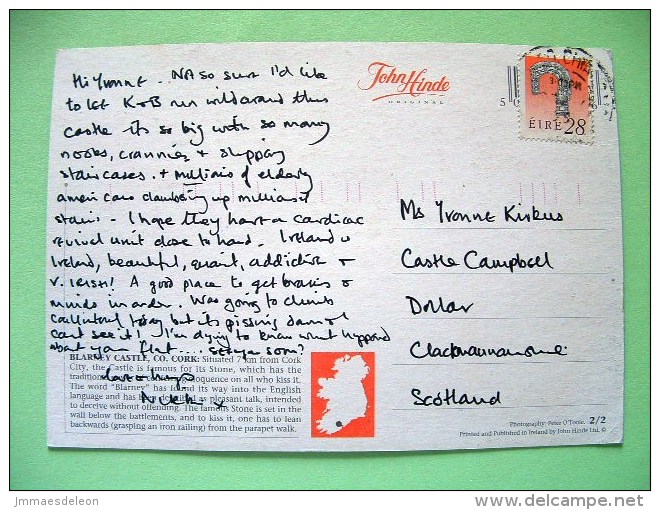 Hi Yvonne - NA so sure I'd like
to let K+B run wild around this
castle its so big with so many
nooks, crannies + slippy
staircases. + millions of elderly
americans clambering up millions of
stairs - I hope they have a cardiac
revival unit close to hand. Ireland is
Ireland, beautiful, quaint, addictive +
v. IRISH! A good place to get brains +
minds in order. Was going to climb
today but its pissing down +
cant see it! I'm dying to know what happened
about your flat.... see you soon?
love + hugs
Nicki x
BLARNEY CASTLE, CO. CORK: Situated 7 km from Cork
City, the Castle is famous for its Stone, which has the
tradition eloquence on all who kiss it.
The word "Blarney" has found its way into the English
language and has been described as pleasant talk, intended
to deceive without offending. The famous Stone is set in the
wall below the battlements, and to kiss it, one has to lean
backwards (grasping an iron railing) from the parapet walk.
John Hinde
ORIGINAL
5 0
ÉIRE 28
Ms Yvonne Kirkus
Castle Campbell
Dollar
Clackmannanshire
Scotland
Photography: Peter O'Toole. 2/2
Printed and Published in Ireland by John Hinde Ltd. ©
jmmaesdeleon
delcampe.net